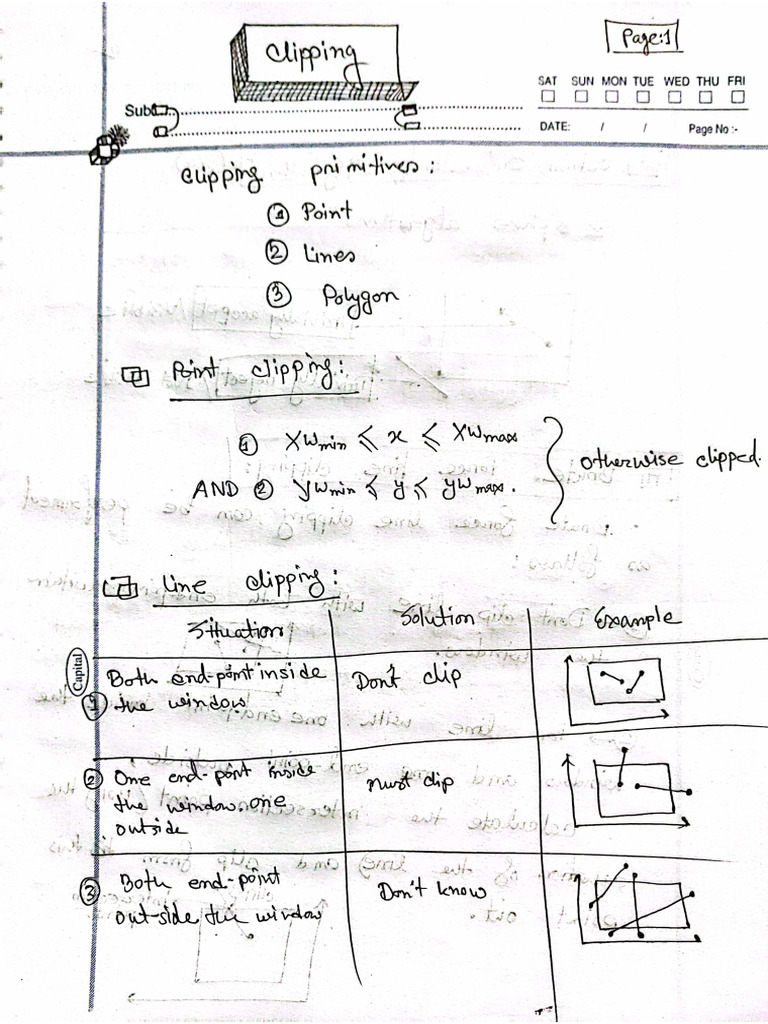 Clipping
Page:1
SAT SUN MON TUE WED THU FRI
Sub:
DATE: / / Page No :-
Clipping primitives:
① Point
② Lines
③ Polygon
Point Clipping:
① Xwmin ≤ x ≤ Xwmax
AND ② ywmin ≤ y ≤ ywmax.
otherwise clipped.
Line Clipping:
Situation Solution Example
Capital
① Both end-point inside the window
Don't clip
② One end-point inside
the window, one
outside
must clip
③ Both end-point
out-side the window
Don't know